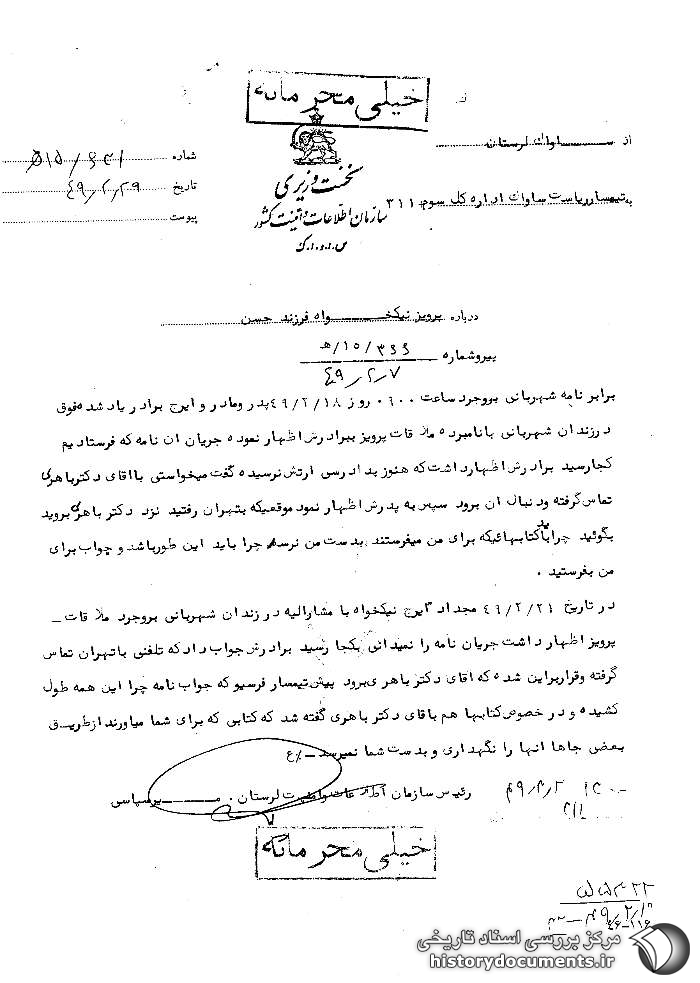 خیلی محرمانه
از ســـاواك لرستان
به تیمسار ریاست ساواك اداره کل سوم ۳۱۱
نخست وزیری
سازمان اطلاعات و امنیت کشور
س.ا.و.ا.ك
شماره
تاریخ ۴۹/۲/۲۹
پیوست
درباره پرویز نیکخـــواه فرزند حسن
پیروشماره ۳۶۶/۱۵/ه
۴۹/۲/۷
برابر نامه شهربانی بروجرد ساعت ۰۹۰۰ روز ۴۹/۲/۱۸ پدر ومادر و ایرج برادر یاد شده فوق
در زندان شهربانی با نامبرده ملاقات پرویز ببرادرش اظهار نموده جریان ان نامه که فرستادیم
کجا رسید برادرش اظهارداشت که هنوز بدادرسی ارتش نرسیده گفت میخواستی با اقای دکتر باهری
تماس گرفته ودنبال ان برود سپس به پدرش اظهار نمود موقعیکه بتهران رفتید نزد دکتر باهری بروید
بگوئید چرا کتابهائیکه برای من میفرستند بدست من نرسد چرا باید این طور باشد و جواب برای
من بفرستید .
در تاریخ ۴۹/۲/۲۱ مجدداً ایرج نیکخواه با مشارالیه در زندان شهربانی بروجرد ملاقات ـ
پرویز اظهار داشت جریان نامه را نمیدانی بکجا رسید برادرش جواب داد که تلفنی با تهران تماس
گرفته وقرار براین شده که اقای دکتر باهری برود پیش تیمسار فرسیو که جواب نامه چرا این همه طول
کشیده و در خصوص کتابها هم باقای دکتر باهری گفته شد که کتابی که برای شما میاورند از طریـق
بعضی جاها انها را نگهداری و بدست شما نمیرسد ـ
رئیس سازمان اطلاعات وامنیت لرستان .
خیلی محرمانه
مرکز بررسی اسناد تاریخی
historydocuments.ir